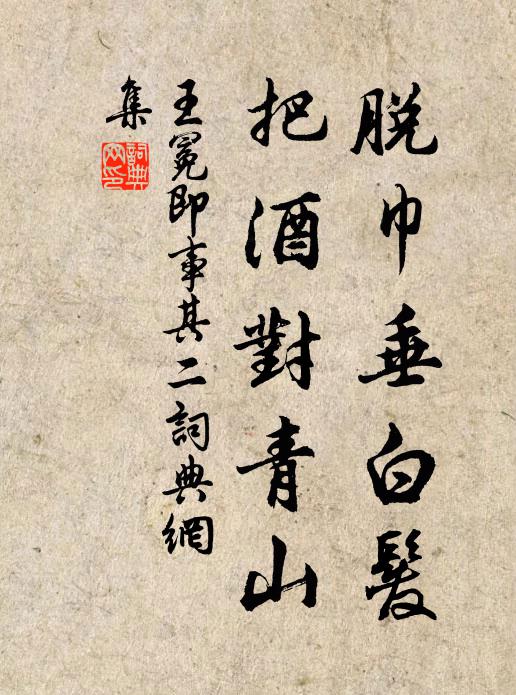 脫巾垂白髮
把酒對青山
王冕即事其二詞典網
集
詞典
网印